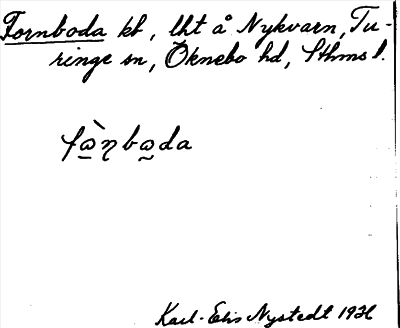 Fornboda kb, lht å Nykvarn, Tu-
ringe sn, Öknebo hd, Sthms l.
fɷ̀ɳbɷda
Karl-Elis Nystedt